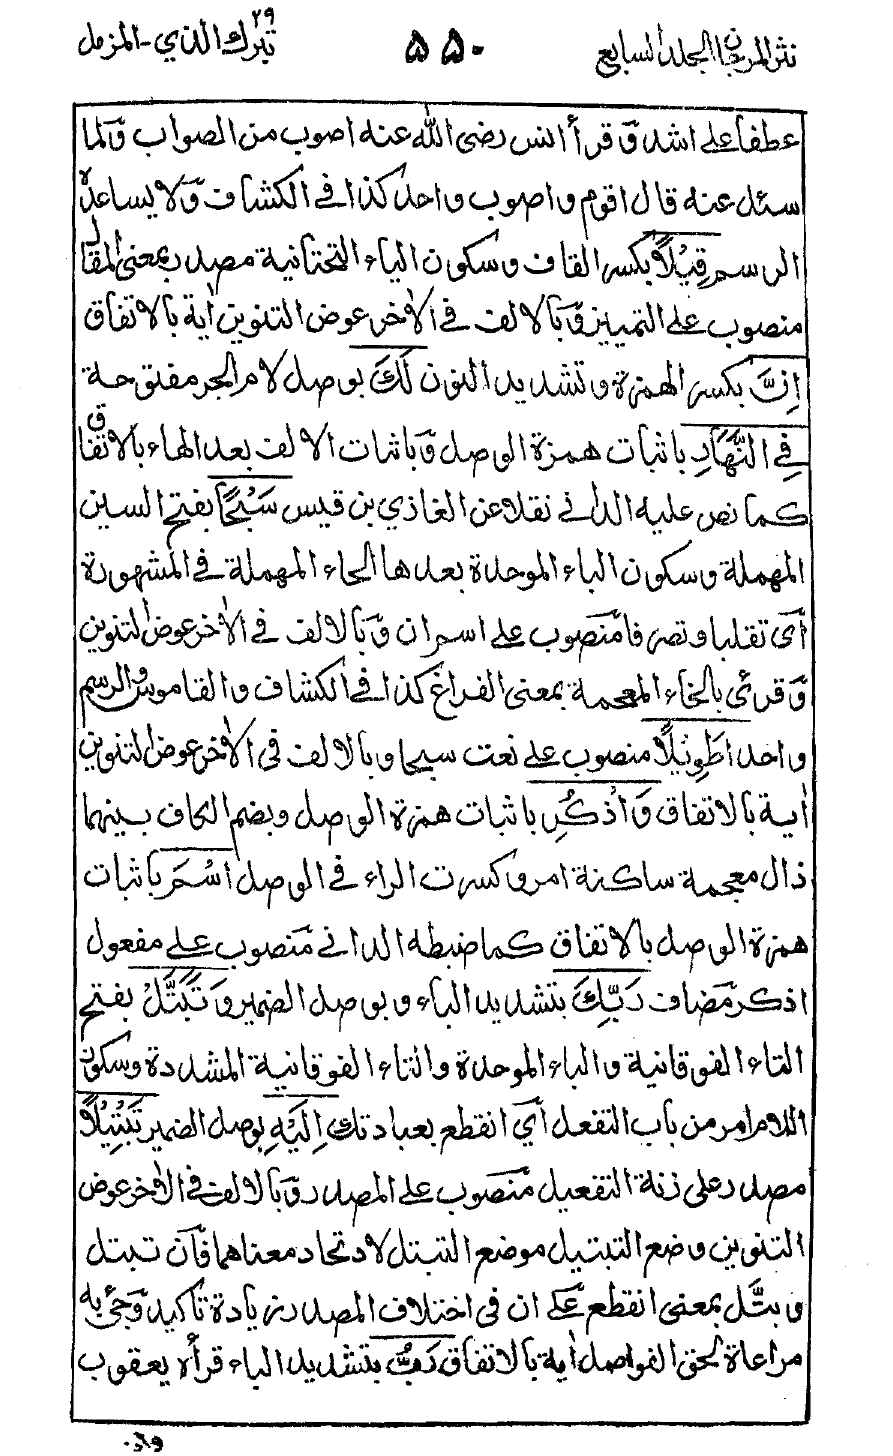 نثر المرجان الجلد السابع ۵۵۰ تبرك الذي ٢٩ - المزمل
عطفا على اشد وقرأ انس رضى الله عنه اصوب من الصواب ولما
سئل عنه قال اقوم واصوب واحد كذا في الكشاف ولا يساعده
الرسم قِيْلًا بكسر القاف وسكون الياء التحتانية مصدر بمعنى المقال
منصوب على التمييز وبالالف في الاٰخر عوض التنوين اٰية بالاتفاق
اِنَّ بكسر الهمزة وتشديد النون لَكَ بوصل لام الجر مفتوحة
فِي النَّهَارِ باثبات همزة الوصل وباثبات الالف بعد الهاء بالاتفاق
كما نص عليه الداني نقلا عن الغازي بن قيس سَبْحًا بفتح السين
المهملة وسكون الباء الموحدة بعدها الحاء المهملة في المشهورة
أي تقلبا وتصرفا منصوب على اسم ان وبالالف في الاٰخر عوض التنوين
وقرئ بالخاء المعجمة بمعنى الفراغ كذا في الكشاف والقاموس والرسم
واحد طَوِيْلًا منصوب على نعت سبحا وبالالف في الاٰخر عوض التنوين
اٰية بالاتفاق وَاذْكُرِ باثبات همزة الوصل وبضم الكاف بينهما
ذال معجمة ساكنة امر وكسرت الراء في الوصل اسْمَ باثبات
همزة الوصل بالاتفاق كما ضبطه الداني منصوب على مفعول
اذكر مضاف رَبِّكَ بتشديد الباء وبوصل الضمير وَتَبَتَّلْ بفتح
التاء الفوقانية والباء الموحدة والتاء الفوقانية المشددة وسكون
اللام امر من باب التفعل أي انقطع بعبادتك اِلَيْهِ بوصل الضمير تَبْتِيْلًا
مصدر على زنة التفعيل منصوب على المصدر وبالالف في الاٰخر عوض
التنوين وضع التبتيل موضع التبتل لاتحاد معناهما فان تبتل
وبتَّل بمعنى انقطع على ان في اختلاف المصدر زيادة تأكيد وجئ به
مراعاة لحق الفواصل اٰية بالاتفاق رَبُّ بتشديد الباء قرأه يعقوب